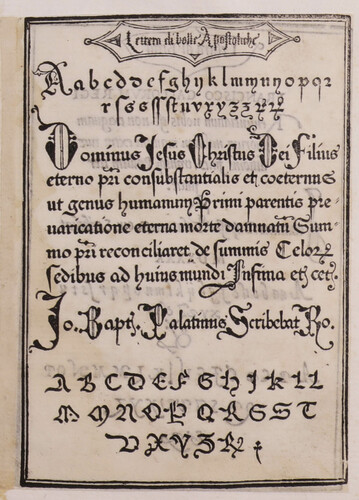 Lettera di bolle Apostoliche
A a b c d d e f g h y k l m ıŋ n ıŋ o p q r
r s ſ ß s ſſ st u v x y z ʒ ꝝ ꝝ
Dominus Jesus Christus Dei Filius
eterno pr̄i consubstantialis et coeternus
ut genus humanuŋ Primi parentis pre⸗
uaricatione eterna morte damnatū Sum
mo pr̄i reconciliaret de summis Celoꝝ
sedibus ad huius mūdi Infima et cet.
Jo. Bapt. Palatinus Scribebat Ro.
A B C D E F G H J K L L
M M N O P Q R S S T
V V X Y Z ꝝ